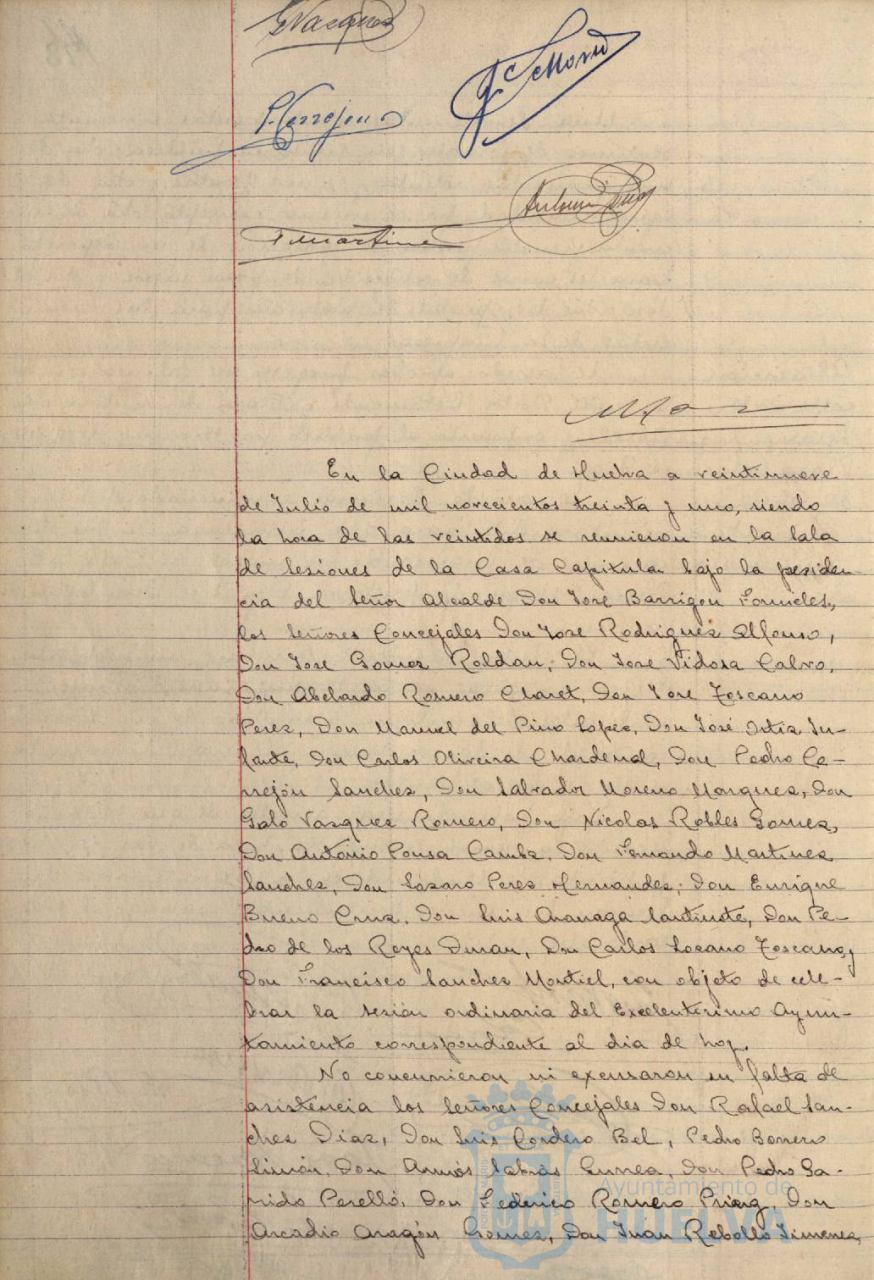 GVazquez
S. Moreno
P. Cerrejon
Antonio
F Martinez
En la Ciudad de Huelva a veintinueve
de Julio de mil novecientos treinta y uno, siendo
la hora de las veintidos se reunieron en la Sala
de Sesiones de la Casa Capitular bajo la presiden-
cia del Señor Alcalde Don José Barrigon Fornieles,
los Señores Concejales Don Jose Rodriguez Alfonso,
Don Jose Gomez Roldan, Don Jose Vidosa Calvo,
Don Abelardo Romero Claret, Don Jose Toscano
Perez, Don Manuel del Pino Lopez, Don José Ortiz In-
fante, Don Carlos Oliveira Chardenal, Don Pedro Ce-
rrejón Sanchez, Don Salvador Moreno Marquez, Don
Galo Vazquez Romero, Don Nicolas Robles Gomez,
Don António Ponsa Camba, Don Fernando Martinez
Sanchez, Don Lázaro Perez Hernandez, Don Enrique
Bueno Cruz, Don Luis Aranaga Santinote, Don Pe-
dro de los Reyes Duran, Don Carlos Lozano Toscano, y
Don Francisco Sanchez Montiel, con objeto de cele-
brar la sesión ordinaria del Excelentísimo Ayun-
tamiento correspondiente al dia de hoy.
No concurrieron ni excusaron su falta de
asistencia los Señores Concejales Don Rafael San-
chez Díaz, Don Luis Cordero Bel, Pedro Borrero
Limón, Don Amós Sabrás Gurrea, Don Pedro Ga-
rrido Perelló, Don Federico Romero Don
Arcadio Aragón Gomez, Don Juan Rebollo Jimenez,
Ayuntamiento de
HUELVA